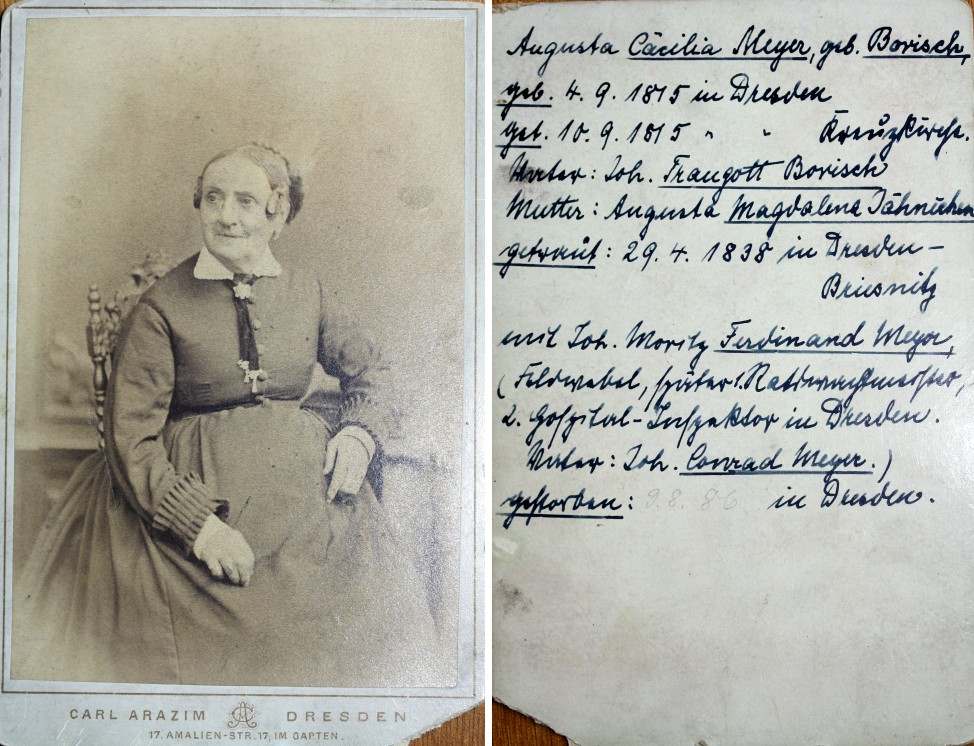 CARL ARAZIM CA DRESDEN
17. AMALIEN-STR. 17, IM GARTEN.
Augusta Cäcilia Meyer, geb. Borisch,
geb. 4. 9. 1815 in Dresden
get. 10. 9. 1815 " " Kreuzkirche.
Vater: Joh. Traugott Borisch
Mutter: Augusta Magdalena Jähnichen
getraut: 29. 4. 1838 in Dresden-
Briesnitz
mit Joh. Moritz Ferdinand Meyer,
(Feldwebel, später 1. Ratswachtmeister,
2. Hospital-Inspektor in Dresden.
Vater: Joh. Conrad Meyer.)
gestorben: 9. 8. 86 in Dresden.